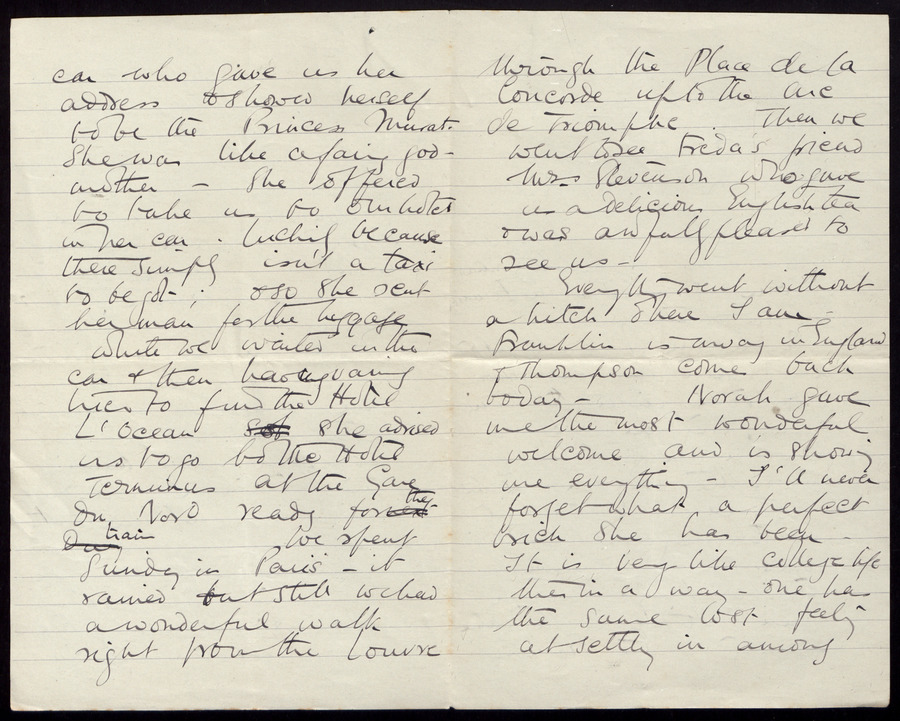 car who gave us her
address & showed herself
to be the Princess Murat.
She was like a fairy god-
mother – She offered
to take us to our hotel
in her car. luckily because
there simply isn't a taxi
to be got; & so she sent
her man for the luggage
while we waited in the
car & then having vainly
tried to find the Hotel
L'Ocean she advised
us to go to the Hotel
Terminus at the Gare
du Nord ready for the
train We spent
Sunday in Paris – it
rained but still we had
a wonderful walk
right from the Louvre
through the Place de la
Concorde up to the Arc
de Triomphe. Then we
went to see Freda's friend
Mrs Stevenson who gave
us a delicious English tea
& was awfully pleased to
see us –
Everything went without
a hitch & here I am –
Franklin is away in England
& Thompson come back
today – Norah gave
me the most wonderful
welcome and is showing
me everything – I'll never
forget what a perfect
brick she has been –
It is very like college life
this in a way – one has
the same lost feeling
at settling in among